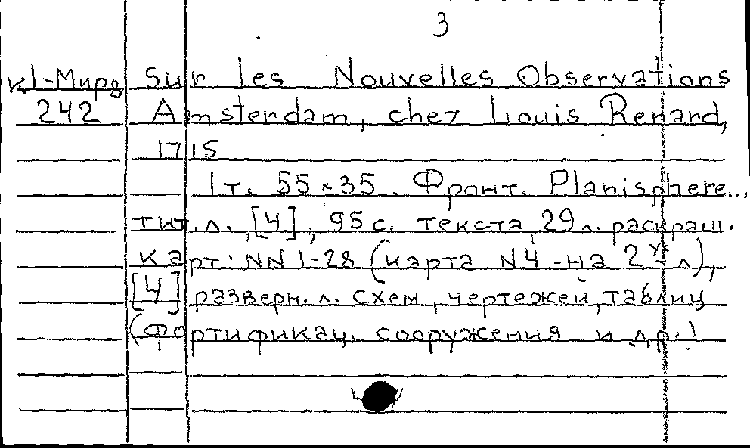 3
К1-Мирд Sur les Nouvelles Observations
242 Amsterdam, chez Louis Renard,
1715
1т. 55×35. Фронт. Planisphere...,
тит.л., [4], 95с. текста, 29л. раскраш.
карт: NN 1-28 (карта N4 -на 2х л),
[4] разверн. л. схем, чертежей, таблиц
(фортификац. сооружения и др.)